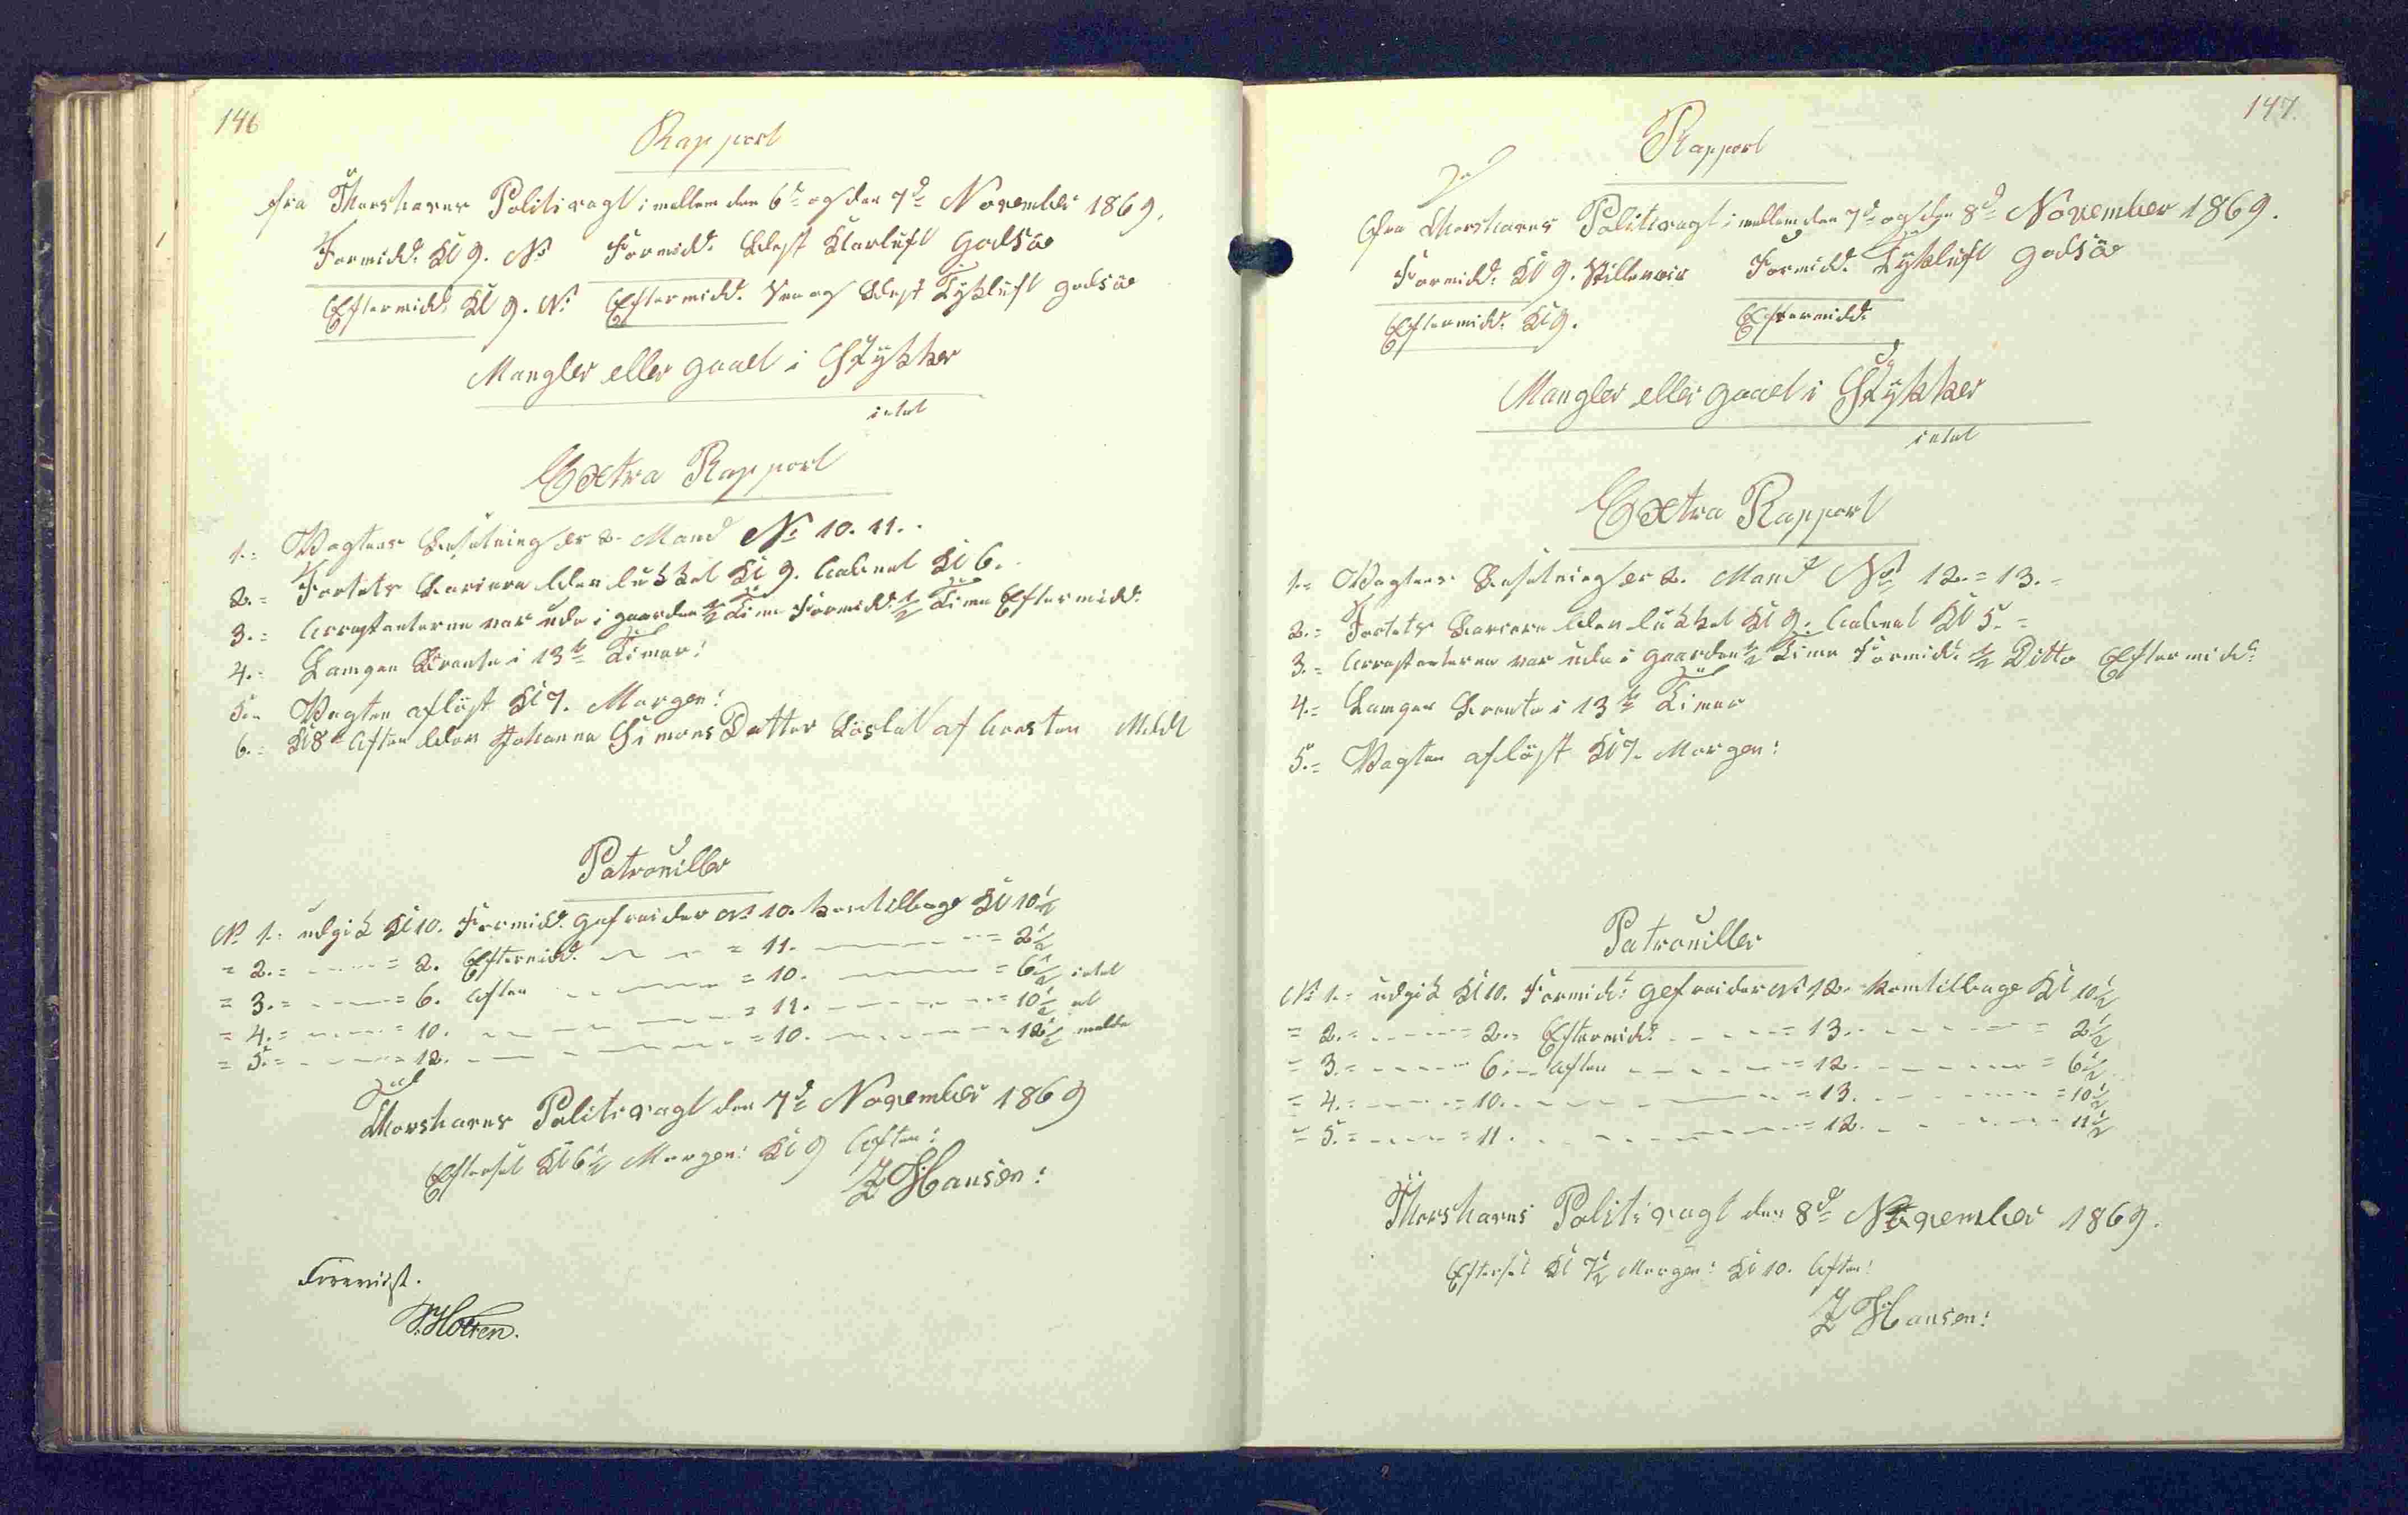 146
Rapport
fra Thorshavns Politivagt imellem den 6d og den 7d November 1869.
Formidd. Kl 9. No Formidd. Blæst Klarluft godsöe
Eftermidd. Kl 9. No Eftermidd. Blæst Tykluft godsöe
Mangler eller gaaet i Stykker
intet
Extra Rapport
1.= Vagtens Besætning er 2. Mand No 10. 11.
2.= Fortets Barriere blev lukket Kl 9. aabnet Kl 6.
3.= Arrestanterne var ude i gaarden 1/2 Time Formidd. 1/2 Time Eftermidd.
4.= Lampen Brænte i 13 1/2 Timer!
5.= Vagten aflöst Kl 7. Morgen!
6.= Kl 8 Aften blev Johanne Simons Datter Löslat af Aresten
Patrouiller
No 1.= udgik Kl 10. Formidd. gefreider No 10. kom tilbage Kl 10 1/2
= 2.= = 2. Eftermidd. = 11. = 2 1/2
= 3.= = 6. Aften = 10. = 6 1/2 intet
= 4.= = 10. = 11. = 10 1/2 at
= 5.= = 12. = 10. 12 1/2 melde
Thorshavns Politivagt den 7d November 1869
Efterset Kl 6 1/2 Morgen! Kl 9 Aften!
Z Hansen!
Foreviist.
Holten.
147.
Rapport
fra Thorshavns Politivagt imellem den 7d og den 8d November 1869.
Formidd. Kl 9. Stilleveir Formidd. Tykluft godsöe
Eftermidd. Kl 9. Eftermidd.
Mangler eller gaaet i Stykker
intet
Extra Rapport
1.= Vagtens Besætning er 2. Mand No 12.= 13.=
2.= Fortets Barriere blev lukket Kl 9. aabnet Kl 5.=
3.= Arrestanterne var ude i gaarden 1/2 Time Formidd. 1/2 Ditto Eftermidd.
4.= Lampen Brænte i 13 1/2 Timer
5.= Vagten aflöst Kl 7. Morgen!
Patrouiller
No 1.= udgik Kl 10. Formidd. gefreider No 12. kom tilbage Kl 10 1/2
= 2.= = 2.= Eftermidd. = 13. = 2 1/2
= 3.= 6. Aften = 12. = 6 1/2
= 4.= = 10. = 13. = 10 1/2
= 5.= = 11. = 12. 11 1/2
Thorshavns Politivagt den 8d November 1869.
Efterset Kl 7 1/2 Morgen! Kl 10. Aften!
Z Hansen!